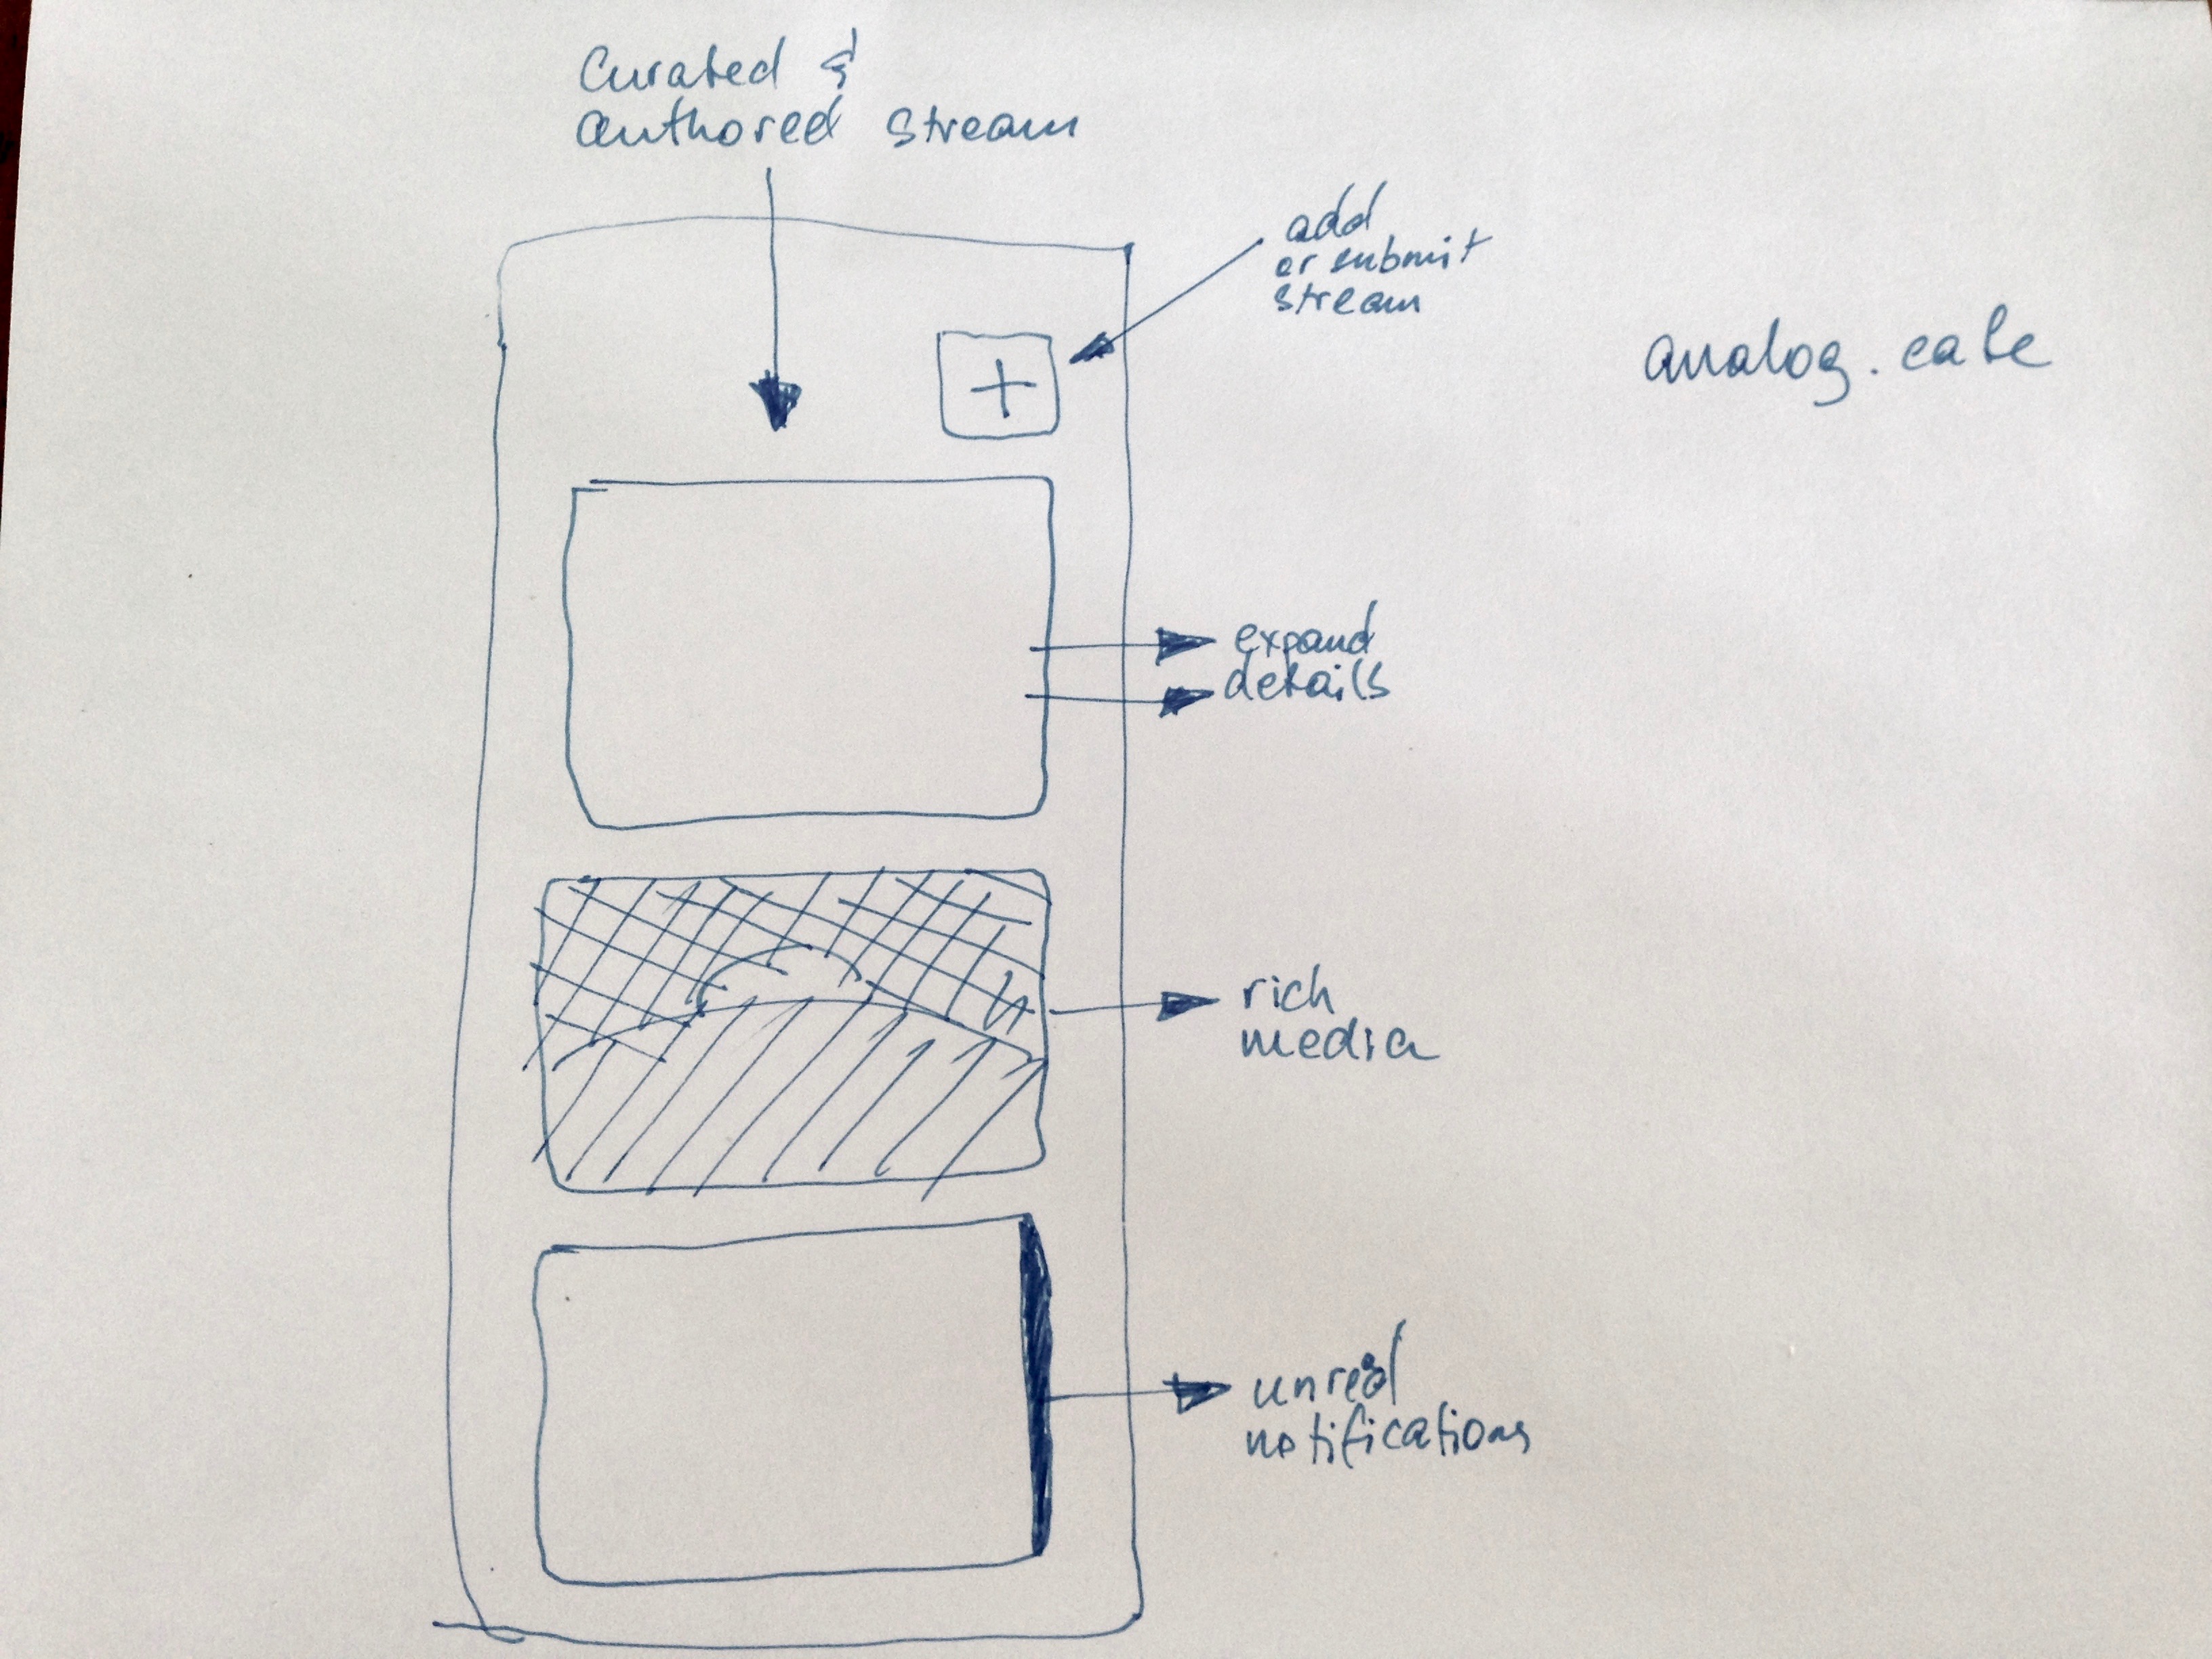 Curated &
authored stream
add
or submit
stream
analog.cafe
+
expand
details
rich
media
unread
notifications